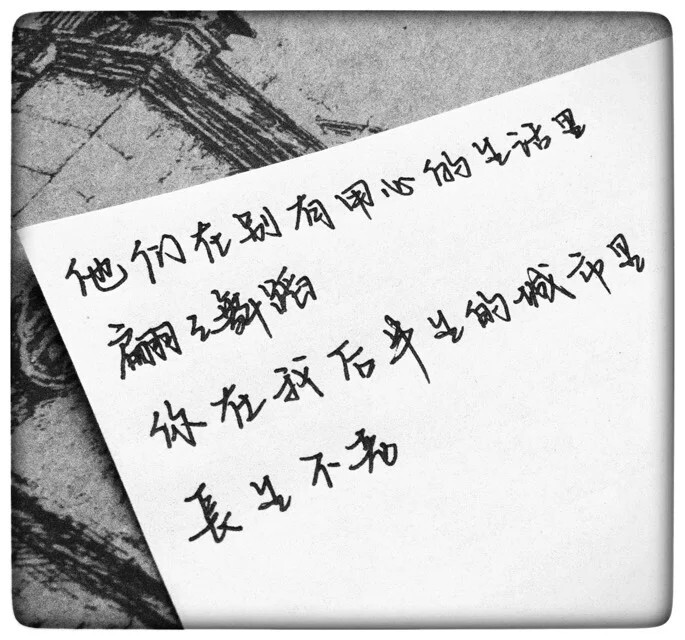 他们在别有用心的生活里
翩々舞蹈
你在我后半生的城市里
長生不老